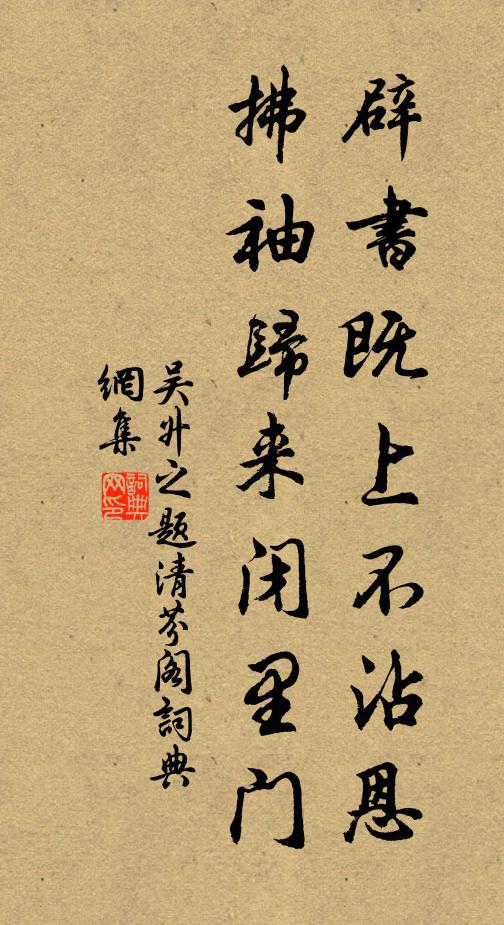 辟书既上不沾恩
拂袖歸来闭里门
吴升之题清芬阁詞典
網集
詞典网印